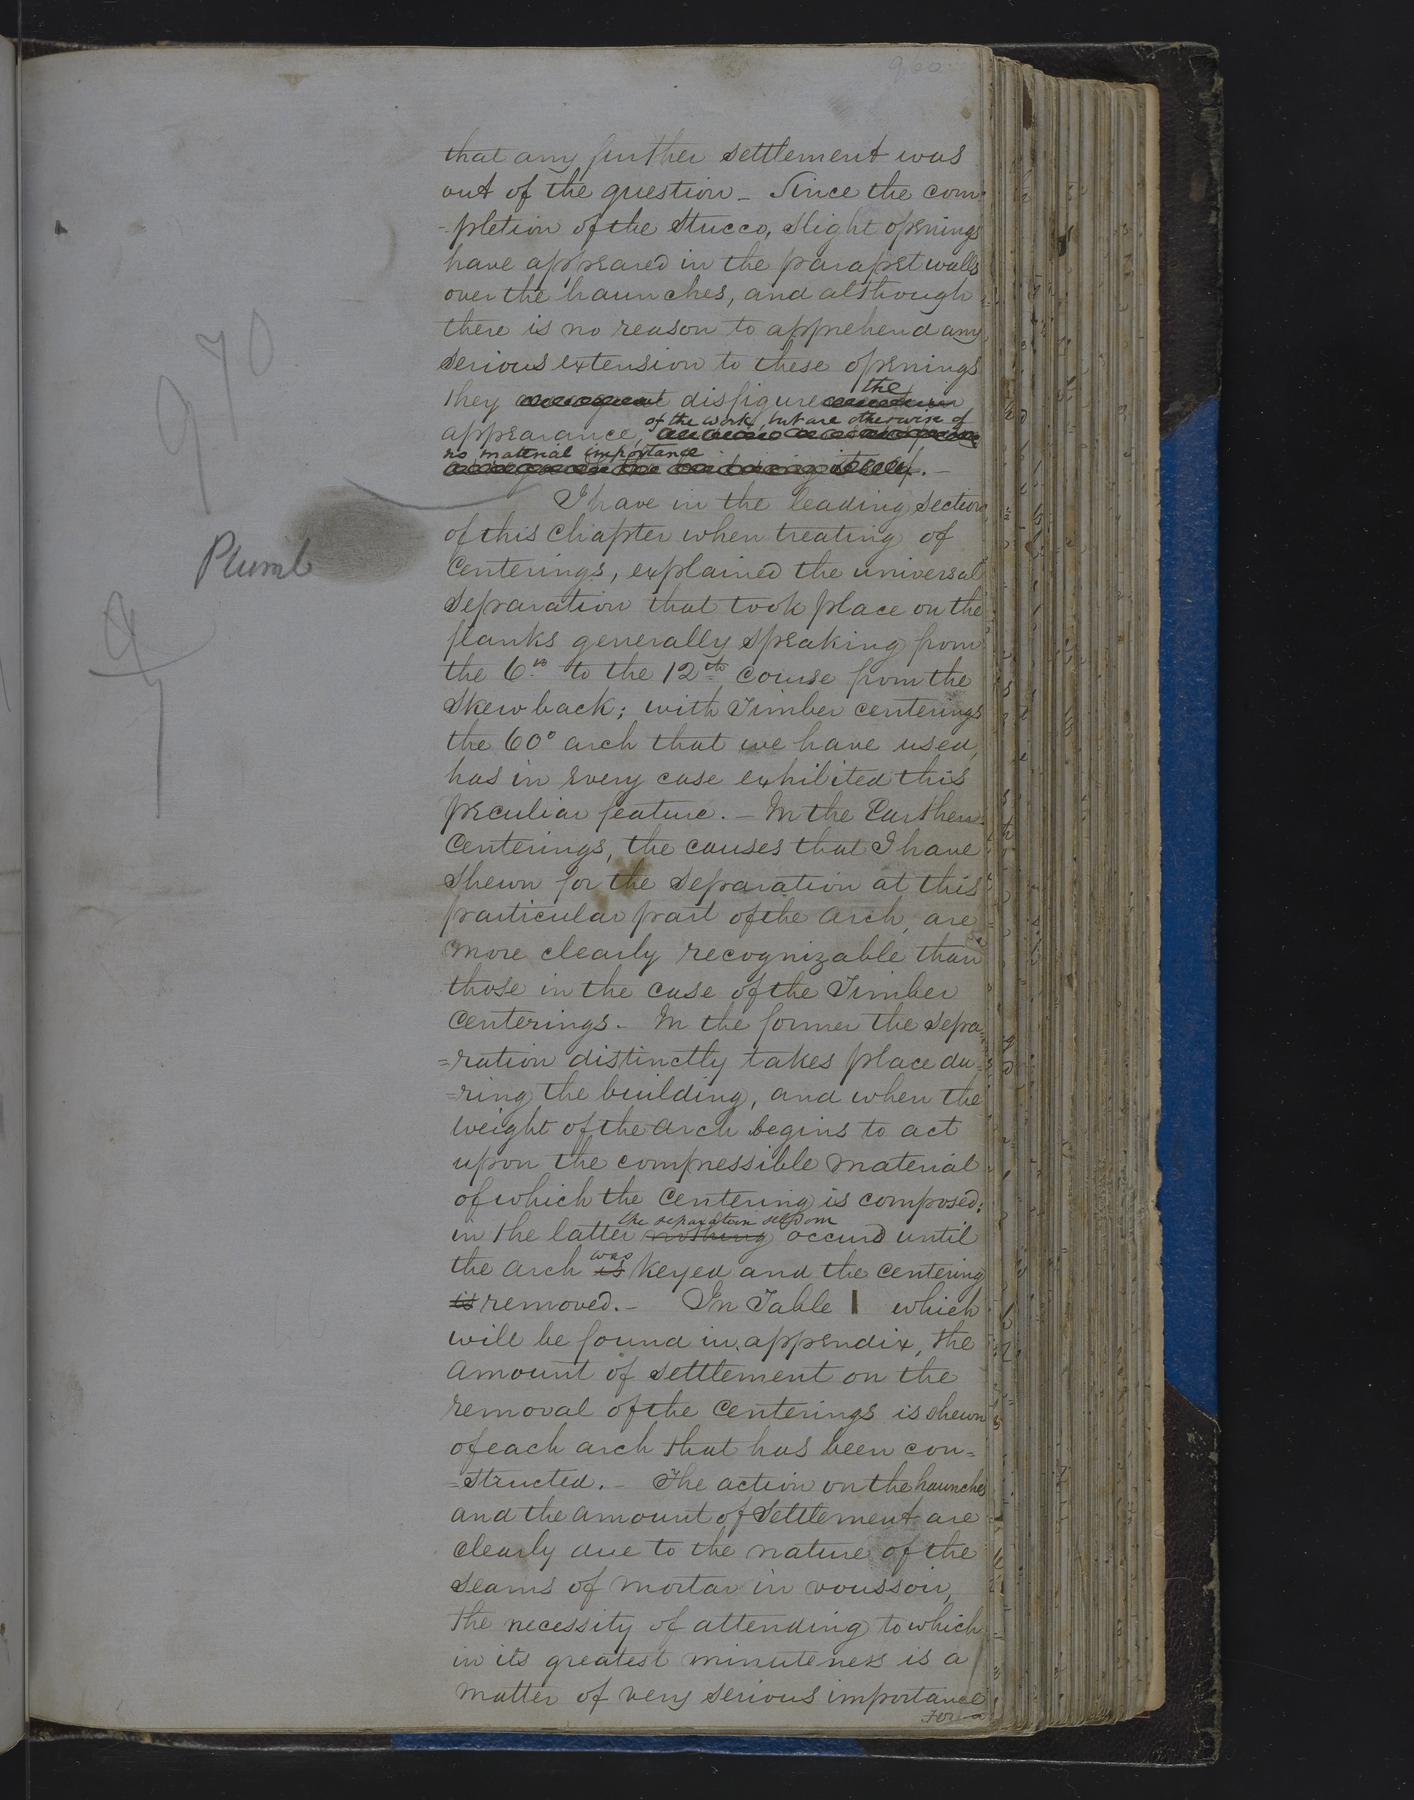 960
that any further settlement was
out of the question - Since the com-
-pletion of the Stucco, slight openings
have appeared in the parapet walls
over the haunches, and although
there is no reason to apprehend any
serious extension to these openings
970
the
they disfigure
of the work, but are otherwise of
appearance,
no material importance
itself. -
I have in the leading section
of this Chapter when treating of
Plumb
Centerings, explained the universal
separation that took place on the
flanks generally speaking from
the 6th to the 12th course from the
Skewback; with Timber centerings
the 60° arch that we have used,
has in every case exhibited this
peculiar feature. - In the Earthen
Centerings, the causes that I have
shewn for the separation at this
particular part of the arch, are
more clearly recognizable than
those in the case of the Timber
Centerings. - In the former the sepa=
=ration distinctly takes place du=
=ring the building, and when the
weight of the arch begins to act
upon the compressible material
of which the centering is composed;
the separation seldom
in the latter nothing occurd until
was
the arch is keyed and the centering
is removed. - In Table 1 which
will be found in appendix, the
amount of settlement on the
removal of the centerings is shewn
of each arch that has been con=
=structed. - The action on the haunches
and the amount of settlement are
clearly due to the nature of the
seams of mortar in voussoir,
the necessity of attending to which
in its greatest minuteness is a
matter of very serious importance
For